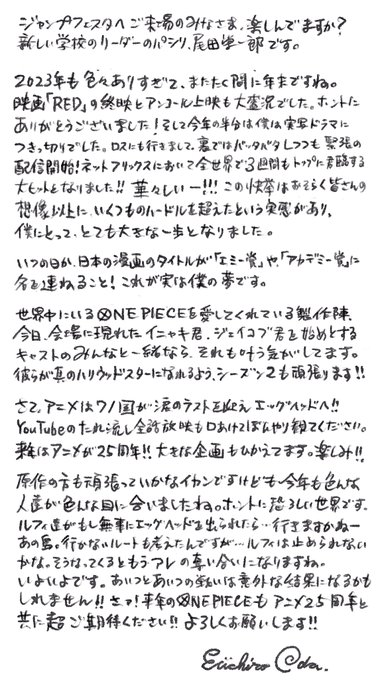 ジャンプフェスタへご来場のみなさま、楽しんでますか?
新しい学校のリーダーのパシリ、尾田栄一郎です。
2023年も色々ありすぎて、またたく間に年末ですね。
映画「RED」の終映とアンコール上映も大盛況でした。ホントに
ありがとうございました!そして今年の半分は僕は実写ドラマに
つきっ切りでした。ロスにも行きまして、裏ではバッタバタしつつも緊張の
配信開始!ネットフリックスにおいて全世界で3週間もトップに君臨する
大ヒットとなりました!!華々しいー!!!この快挙はおそらく皆さんの
想像以上に、いくつものハードルを超えたという実感があり、
僕にとって、とても大きな一歩となりました。
いつの日か、日本の漫画のタイトルが「エミー賞」や、「アカデミー賞」に
名を連ねること!これが実は僕の夢です。
世界中にいるONE PIECEを愛してくれている製作陣、
今日、会場に現れたイニャキ君、ジェイコブ君を始めとする
キャストのみんなと一緒なら、それも叶う気がしてます。
彼らが真のハリウッドスターになれるよう、シーズン2も頑張ります!!
さて、アニメはワノ国が涙のラストを迎え エッグヘッドへ!!
YouTubeのたれ流し全話放映も口あけてぼんやり観てください。
来年はアニメが25周年!!大きな企画もひかえてます。楽しみ!!
原作の方も頑張っていかなイカンですけども今年も色んな
人達が色んな目に合いましたね。ホントに恐ろしい世界です。
ルフィ達がもし無事にエッグヘッドを出られたら…行きますかねー
あの島。行かないルートも考えたんですが…ルフィは止められない
かな。そうなってくるともうアレの奪い合いになりますね。
いよいよです。あいつとあいつの戦いは意外な結果になるかも
しれません!!さァ!来年のONE PIECEも アニメ25周年と
共に超ご期待ください!!よろしくお願いします!!
Eiichiro Oda.